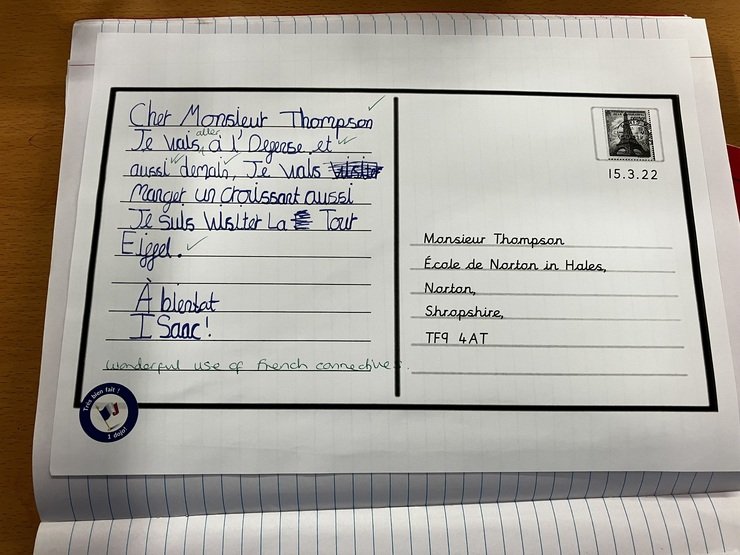 Cher Monsieur Thompson
Je vais aller à l'Defense et
aussi demain, Je vais visiter
manger un croissant aussi
Je suis visiter La Tour
Eiffel.
À bientat
ISaac!
wonderful use of French connectives.
Très bien fait!
1 dojo!
15.3.22
Monsieur Thompson
École de Norton in Hales,
Norton,
Shropshire,
TF9 4AT